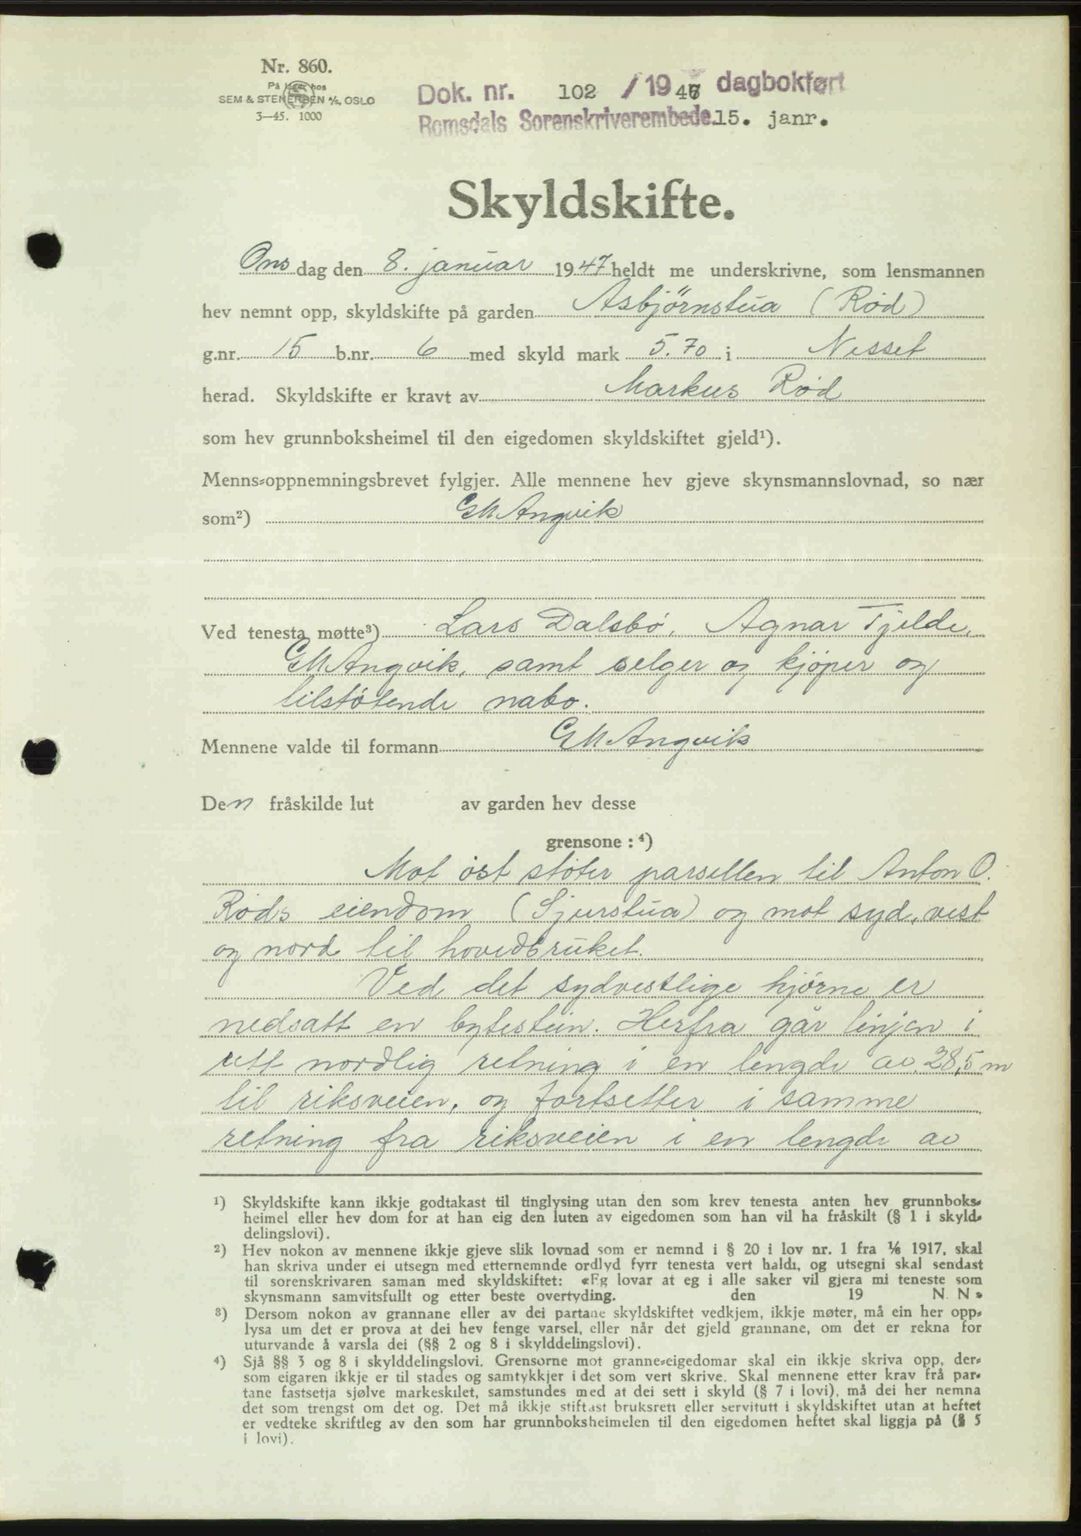 Nr. 860.
På lager hos
SEM & STENERSEN A/S, OSLO
3—45. 1000
Dok. nr. 102 / 1947 dagbokført
Romsdals Sorenskriverembede 15. janr.
Skyldskifte.
Onsdag den 8. januar 1947 heldt me underskrivne, som lensmannen
hev nemnt opp, skyldskifte på garden Asbjørnstua (Rød)
g.nr. 15 b.nr. 6 med skyld mark 5.70 i Nesset
herad. Skyldskifte er kravt av Markus Rød
som hev grunnboksheimel til den eigedomen skyldskiftet gjeld¹).
Menns-oppnemningsbrevet fylgjer. Alle mennene hev gjeve skynsmannslovnad, so nær
som²) GM Angvik
Ved tenesta møtte³) Lars Dalsbø, Agnar Tjelde,
GM Angvik, samt selger og kjøper og
tilstøtende nabo.
Mennene valde til formann GM Angvik
Den fråskilde lut av garden hev desse
grensone : ⁴)
Mot øst støter parsellen til Anton O.
Røds eiendom (Sjurstua) og mot syd, vest
og nord til hovedbruket.
Ved det sydvestlige hjørne er
nedsatt en bytestein. Herfra går linjen i
rett nordlig retning i en lengde av 28,5 m
til riksveien, og fortsetter i samme
retning fra riksveien i en lengde av
¹) Skyldskifte kann ikkje godtakast til tinglysing utan den som krev tenesta anten hev grunnboks-
heimel eller hev dom for at han eig den luten av eigedomen som han vil ha fråskilt (§ 1 i skyld-
delingslovi).
²) Hev nokon av mennene ikkje gjeve slik lovnad som er nemnd i § 20 i lov nr. 1 fra 1/6 1917, skal
han skriva under ei utsegn med etternemnde ordlyd fyrr tenesta vert haldi, og utsegni skal sendast
til sorenskrivaren saman med skyldskiftet: «Eg lovar at eg i alle saker vil gjera mi teneste som
skynsmann samvitsfullt og etter beste overtyding. den 19 N. N.»
³) Dersom nokon av grannane eller av dei partane skyldskiftet vedkjem, ikkje møter, må ein her opp-
lysa um det er prova at dei hev fenge varsel, eller når det gjeld grannane, om det er rekna for
uturvande å varsla dei (§§ 2 og 8 i skylddelingslovi).
⁴) Sjå §§ 3 og 8 i skylddelingslovi. Grensorne mot granne-eigedomar skal ein ikkje skriva opp, der-
som eigaren ikkje er til stades og samtykkjer i det som vert skrive. Skal mennene etter krav frå par-
tane fastsetja sjølve markeskilet, samstundes med at dei sett i skyld (§ 7 i lovi), må dei her nemna
det som trengst om det og. Det må ikkje stiftast bruksrett eller servitutt i skyldskiftet utan at heftet
er vedteke skriftleg av den som har grunnboksheimelen til den eigedomen heftet skal liggja på (§ 5
i lovi).